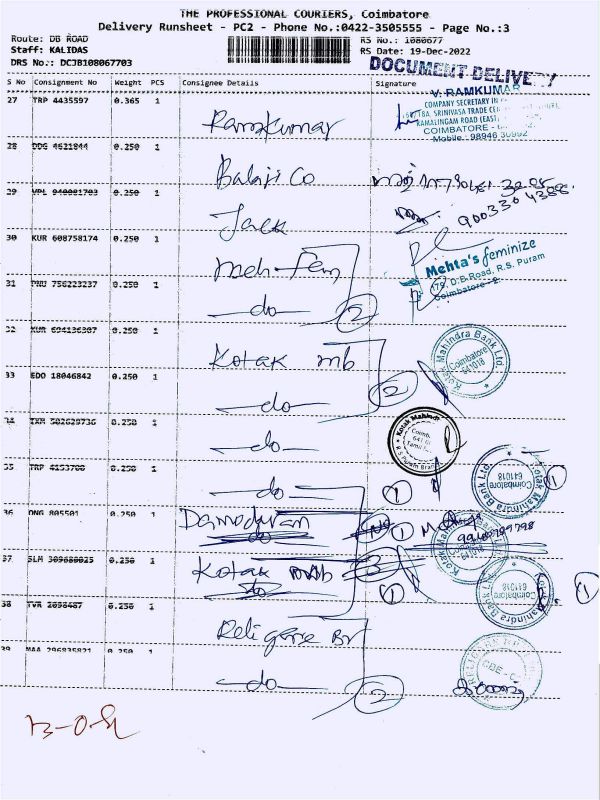 THE PROFESSIONAL COURIERS, Coimbatore
Delivery Runsheet - PC2 - Phone No.:0422-3505555 - Page No.:3
Route: DB ROAD
RS No.: 1080677
Staff: KALIDAS
RS Date: 19-Dec-2022
DRS No.: DCJB108067703
DOCUMENT DELIVERY
S No Consignment No Weight PCS Consignee Details Signature
V. RAMKUMAR
COMPANY SECRETARY IN
SRINIVASA TRADE
RAMALINGAM ROAD (EAST)
COIMBATORE -
Mobile: 98946 30992
27 TRP 4435597 0.365 1 Ramkumar
28 DDG 4621844 0.250 1 Balaji Co
29 VPL 940081703 0.250 1 Jack
30 KUR 608758174 0.250 1 Meh-Fem
Mehta's feminize
D.B.Road, R.S. Puram
Coimbatore -
31 756223237 0.250 1 do 2
32 KUR 694136307 0.250 1 Kotak mb
Kotak Mahindra Bank Ltd. Coimbatore 641018
33 EDO 18046842 0.250 1 do 2
34 302629736 0.250 1 do
Kotak Mahind
35 TRP 4153708 0.250 1 do 1
Kotak Mahindra Bank Ltd. Coimbatore 641018 1
36 805501 0.250 1 Damodaran 1
Kotak Mahindra Bank
37 SLM 309680025 0.250 1 Kotak 1
Kotak Mahindra Bank Ltd. Coimbatore 641018 1
38 TVR 2098487 0.250 1 Religare Br
39 MAA 296835821 0.250 1 do 2
CBE -